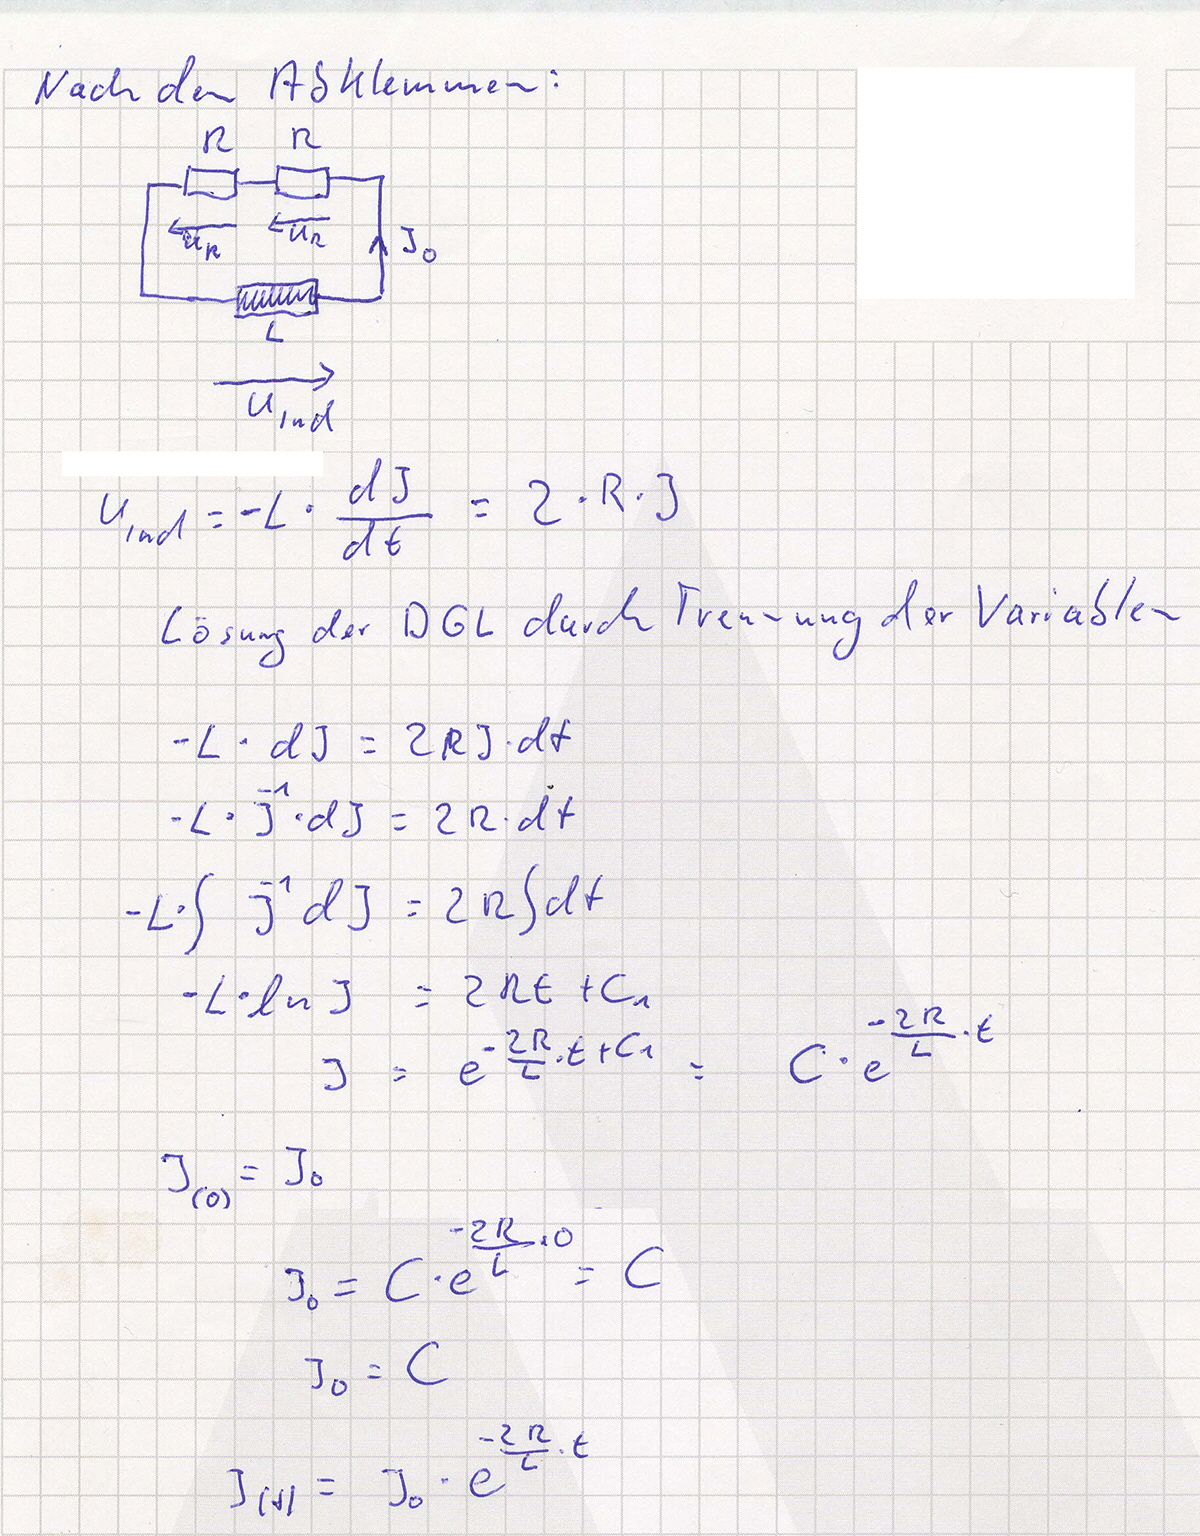 Nach dem Abklemmen:
R R
u_R u_R J_0
L
U_ind
U_ind = -L · dJ/dt = 2 · R · J
Lösung der DGL durch Trennung der Variablen
-L · dJ = 2RJ · dt
-L · J^-1 · dJ = 2R · dt
-L · ∫ J^-1 dJ = 2R ∫ dt
-L · ln J = 2Rt + C_1
J = e^(-2R/L · t + C_1) = C · e^(-2R/L · t)
J_(0) = J_0
J_0 = C · e^(-2R/L · 0) = C
J_0 = C
J_(t) = J_0 · e^(-2R/L · t)